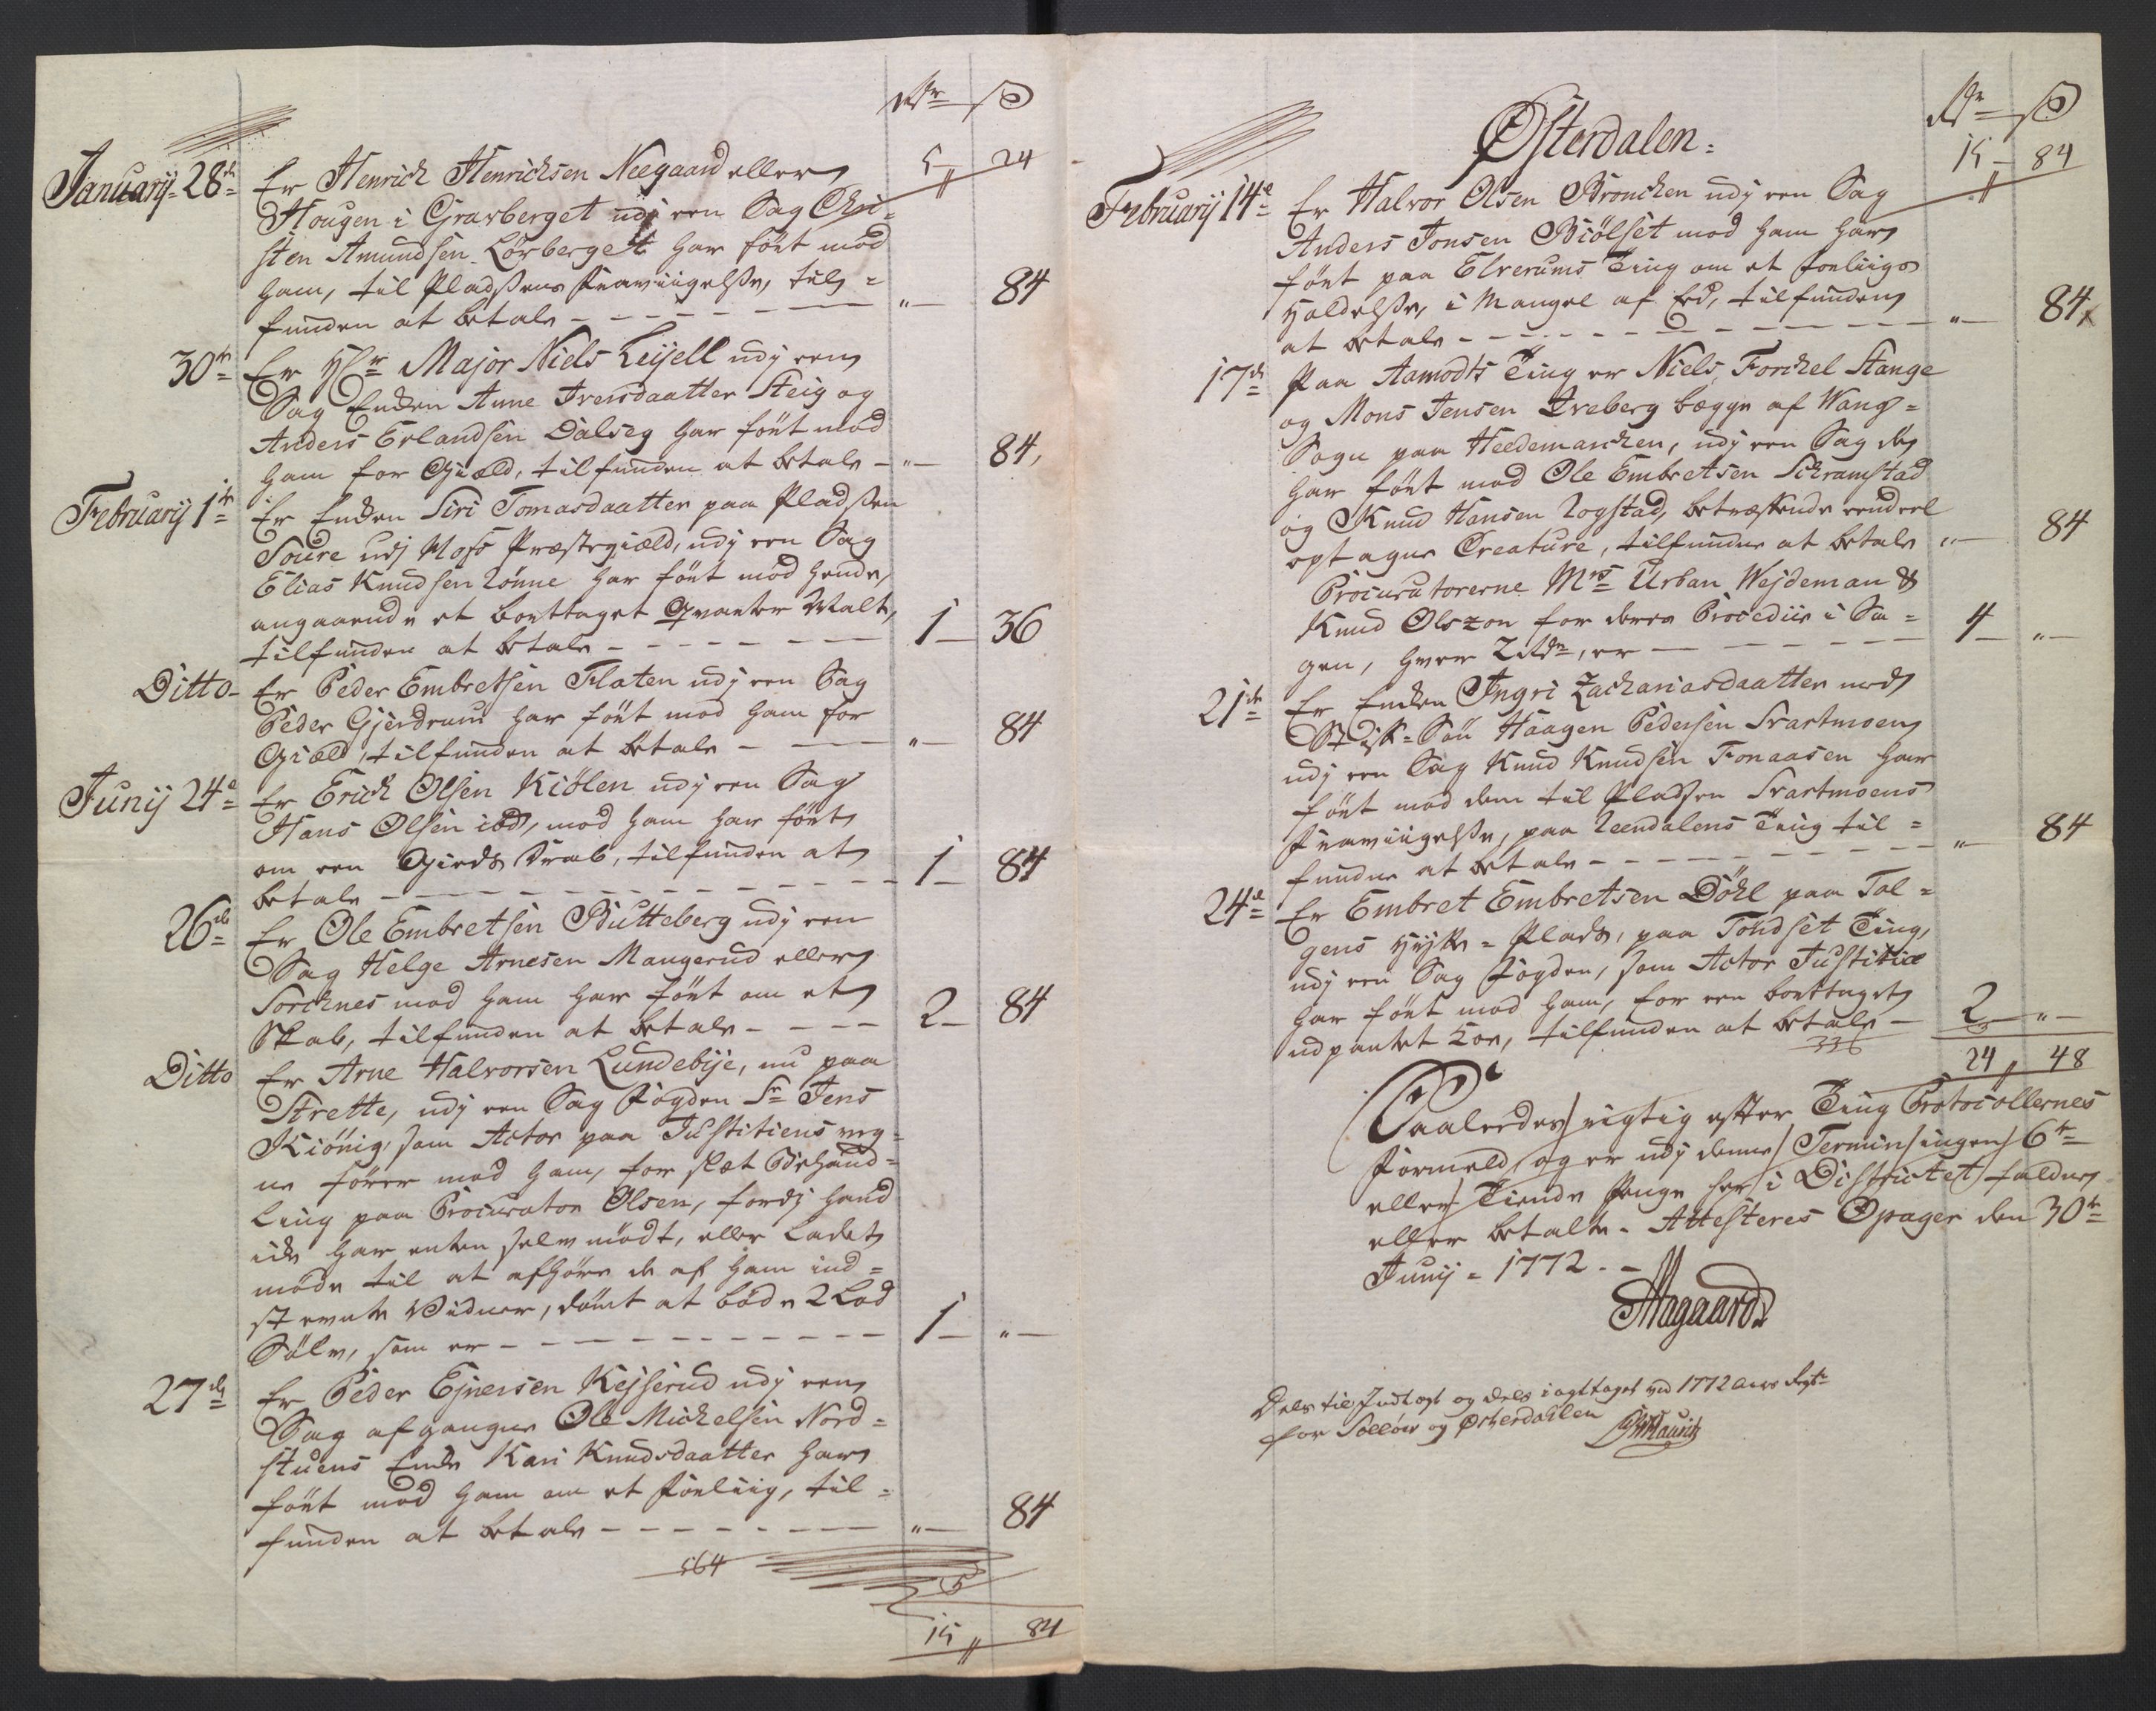 Rdr ß
5 " 24
January 28de Er Henrich Henrichsen Neegaard eller
Hougen i Gravberget udj een Sag Chri-
sten Amundsen Lövberget har fört mod
ham, til Pladsens Fraviigelse, til-
funden at betale - - - " - 84
30te Er Hr Major Niels Leijell udj een
Sag Enken Anne Iversdaatter Steig og
Anders Erlandsen Dalseg har fört mod
ham for Giæld, tilfunden at betale - " - 84
February 1te Er Enken Siri Tomasdaatter paa Pladsen
Soure udj Moss Præstegiæld, udj een Sag
Elias Knudsen Lönne har fört mod hende,
angaaende et borttaget Qvanter Malt,
tilfunden at betale - - - 1 - 36
Ditto - Er Peder Embretsen Flaten udj een Sag
Peder Gjerdrum har fört mod ham for
Giæld, tilfunden at betale - - " - 84
Junij 24de Er Erich Olsen Kiölen udj een Sag
Hans Olsen ibd, mod ham har fört
om een Gierds Trab, tilfunden at
betale - - - 1 - 84
26de Er Ole Embretsen Butteberg udj een
Sag Helge Arnesen Mangerud eller
Sorchnes mod ham har fört om et
Skab, tilfunden at betale - - - 2 - 84
Ditto Er Arne Halvorsen Lundebije, nu paa
Strette, udj een Sag Fogden Sr Jens
Kiönig, som Actor paa Justitiens veg-
ne förer mod ham, for slæt Behand-
ling paa Procurator Olsen, fordj hand
icke har enten selv mödt, eller ladet
möde til at afhöre de af ham ind-
stevnte Vidner, dömt at böde 2 Lod
Sölv, som er - - - 1 - " -
27de Er Peder Ejnersen Kejserud udj een
Sag afgangne Ole Michelsen Nord-
stuens Enke Kari Knudsdaatter har
fört mod ham om et Forliig, til-
funden at betale - - - " - 84
564
15 " 84
Østerdalen:
Rdr ß
15 - 84
February 14de Er Halvor Olsen Bronchen udj een Sag
Anders Jonsen Biölset mod ham har
fört paa Elverums Ting om et Forliigs
Holdelse, i Mangel af Eed, tilfunden
at betale - - - " - 84
17de Paa Aamodts Ting er Niels Forchel Stange
og Mons Jensen Ireberg begge af Wang-
Sogn paa Heedemarchen, udj een Sag de
har fört mod Ole Embretsen Schramstad
og Knud Hansen Logstad, betræffende eendeel
optagne Creature, tilfundne at betale " - 84
Procuratorerne Mrs Urban Wejdeman &
Knud Olszon for deres Procedur i Sa-
gen, hver 2 Rdr, er - - - 4 - " -
21de Er Enken Ingri Zachariasdaatter med
Stif-Sön Haagen Pedersen Svartmoen
udj een Sag Knud Knudsen Fonaasen har
fört mod dem til Pladsen Svartmoens
Fraviigelse, paa Reendalens Ting til-
fundne at betale - - - " - 84
24de Er Embret Embretsen Döhl paa Tol-
gens Hytte-Plads, paa Töndset Ting,
udj een Sag Fogden, som Actor Justitiæ
har fört mod ham, for een borttaget
udpantet Koe, tilfunden at betale - 2 - " -
336
24 " 48
Saaledes rigtig efter Ting Protocollernes
Formeld, og er udj denne Termin ingen 6te
eller Tiende Penge her i Districtet faldne
eller betalte. Attesteres Opager den 30te
Junij - 1772. -
Aagaard
Dels til Indtægt og dels iagttaget ved 1772 Aars Regt.
for Solløer og Østerdahlen